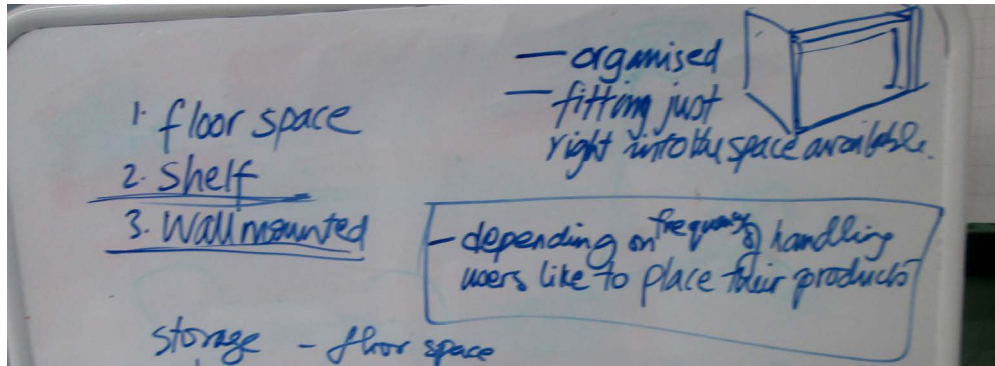 1. floor space
2. Shelf
3. Wall mounted
— organised
— fitting just
right into the space available.
— depending on frequency of handling
users like to place their products
storage - floor space